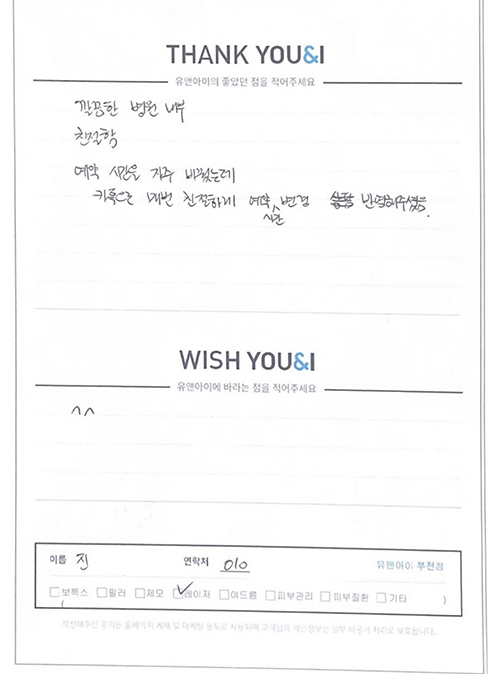 THANK YOU&I
유앤아이의 좋았던 점을 적어주세요
깔끔한 병원 내부
친절함
예약 시간을 자주 바꿨는데
카톡으로 매번 친절하게 예약 시간 변경 반영해주셨음.
WISH YOU&I
유앤아이에 바라는 점을 적어주세요
^^
이름 진 연락처 010 유앤아이 부천점
보톡스 필러 제모 레이저 여드름 피부관리 피부질환 기타 ( )
작성해주신 후기는 홈페이지 게재 및 마케팅 용도로 사용되며 고객님의 개인정보는 일부 비공개 처리로 보호됩니다.